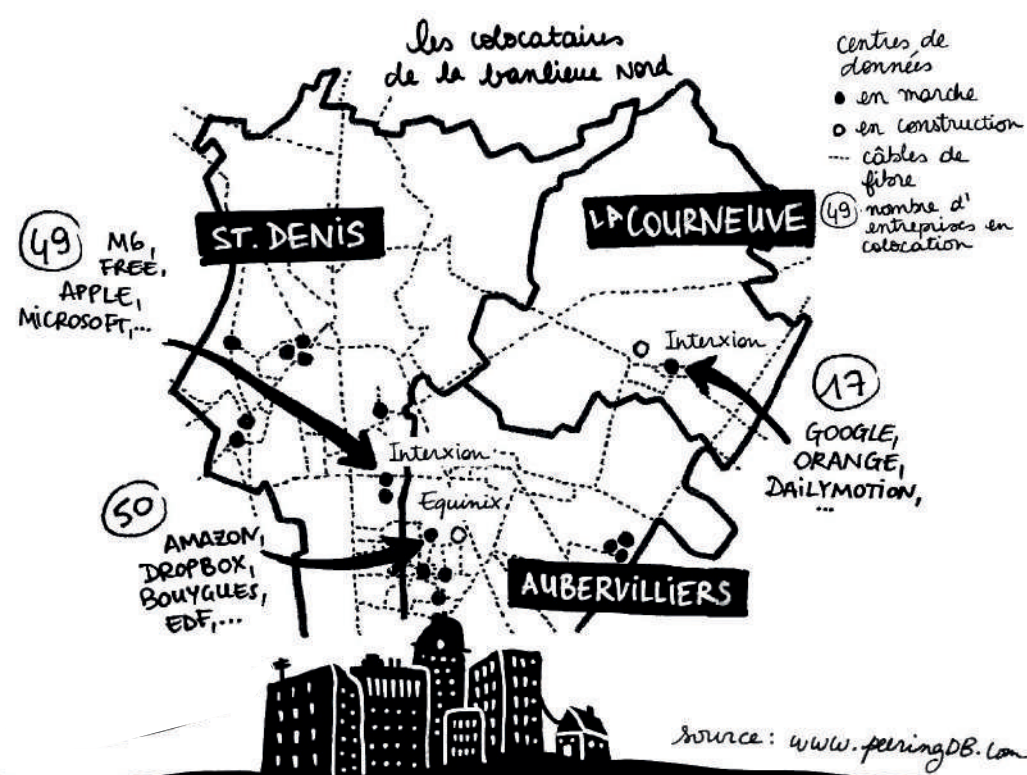 les colocataires
de la banlieue Nord
centres de
données
en marche
en construction
câbles de
fibre
49 nombre d'
entreprises en
colocation
ST. DENIS
LA COURNEUVE
49 M6,
FREE,
APPLE,
MICROSOFT,...
Interxion
17
GOOGLE,
ORANGE,
DAILYMOTION,
...
Interxion
Equinix
50
AMAZON,
DROPBOX,
BOUYGUES,
EDF,...
AUBERVILLIERS
source: www.peeringDB.com